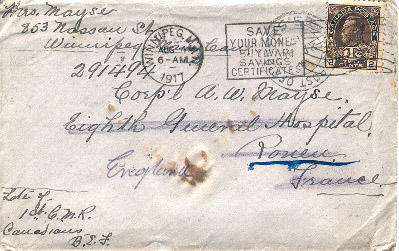 Mrs. Mayse
853 Nassau St
Winnipeg
WINNIPEG, MAN
6-AM
1917
SAVE
YOUR MONEY
BUY WAR
SAVINGS
CERTIFICATES
POST OF
291494
Corp'l A. W. Mayse.
Eighth General Hospital,
Rouen
England
France
Late of
1st C.M.R.
Canadians
B.E.F.